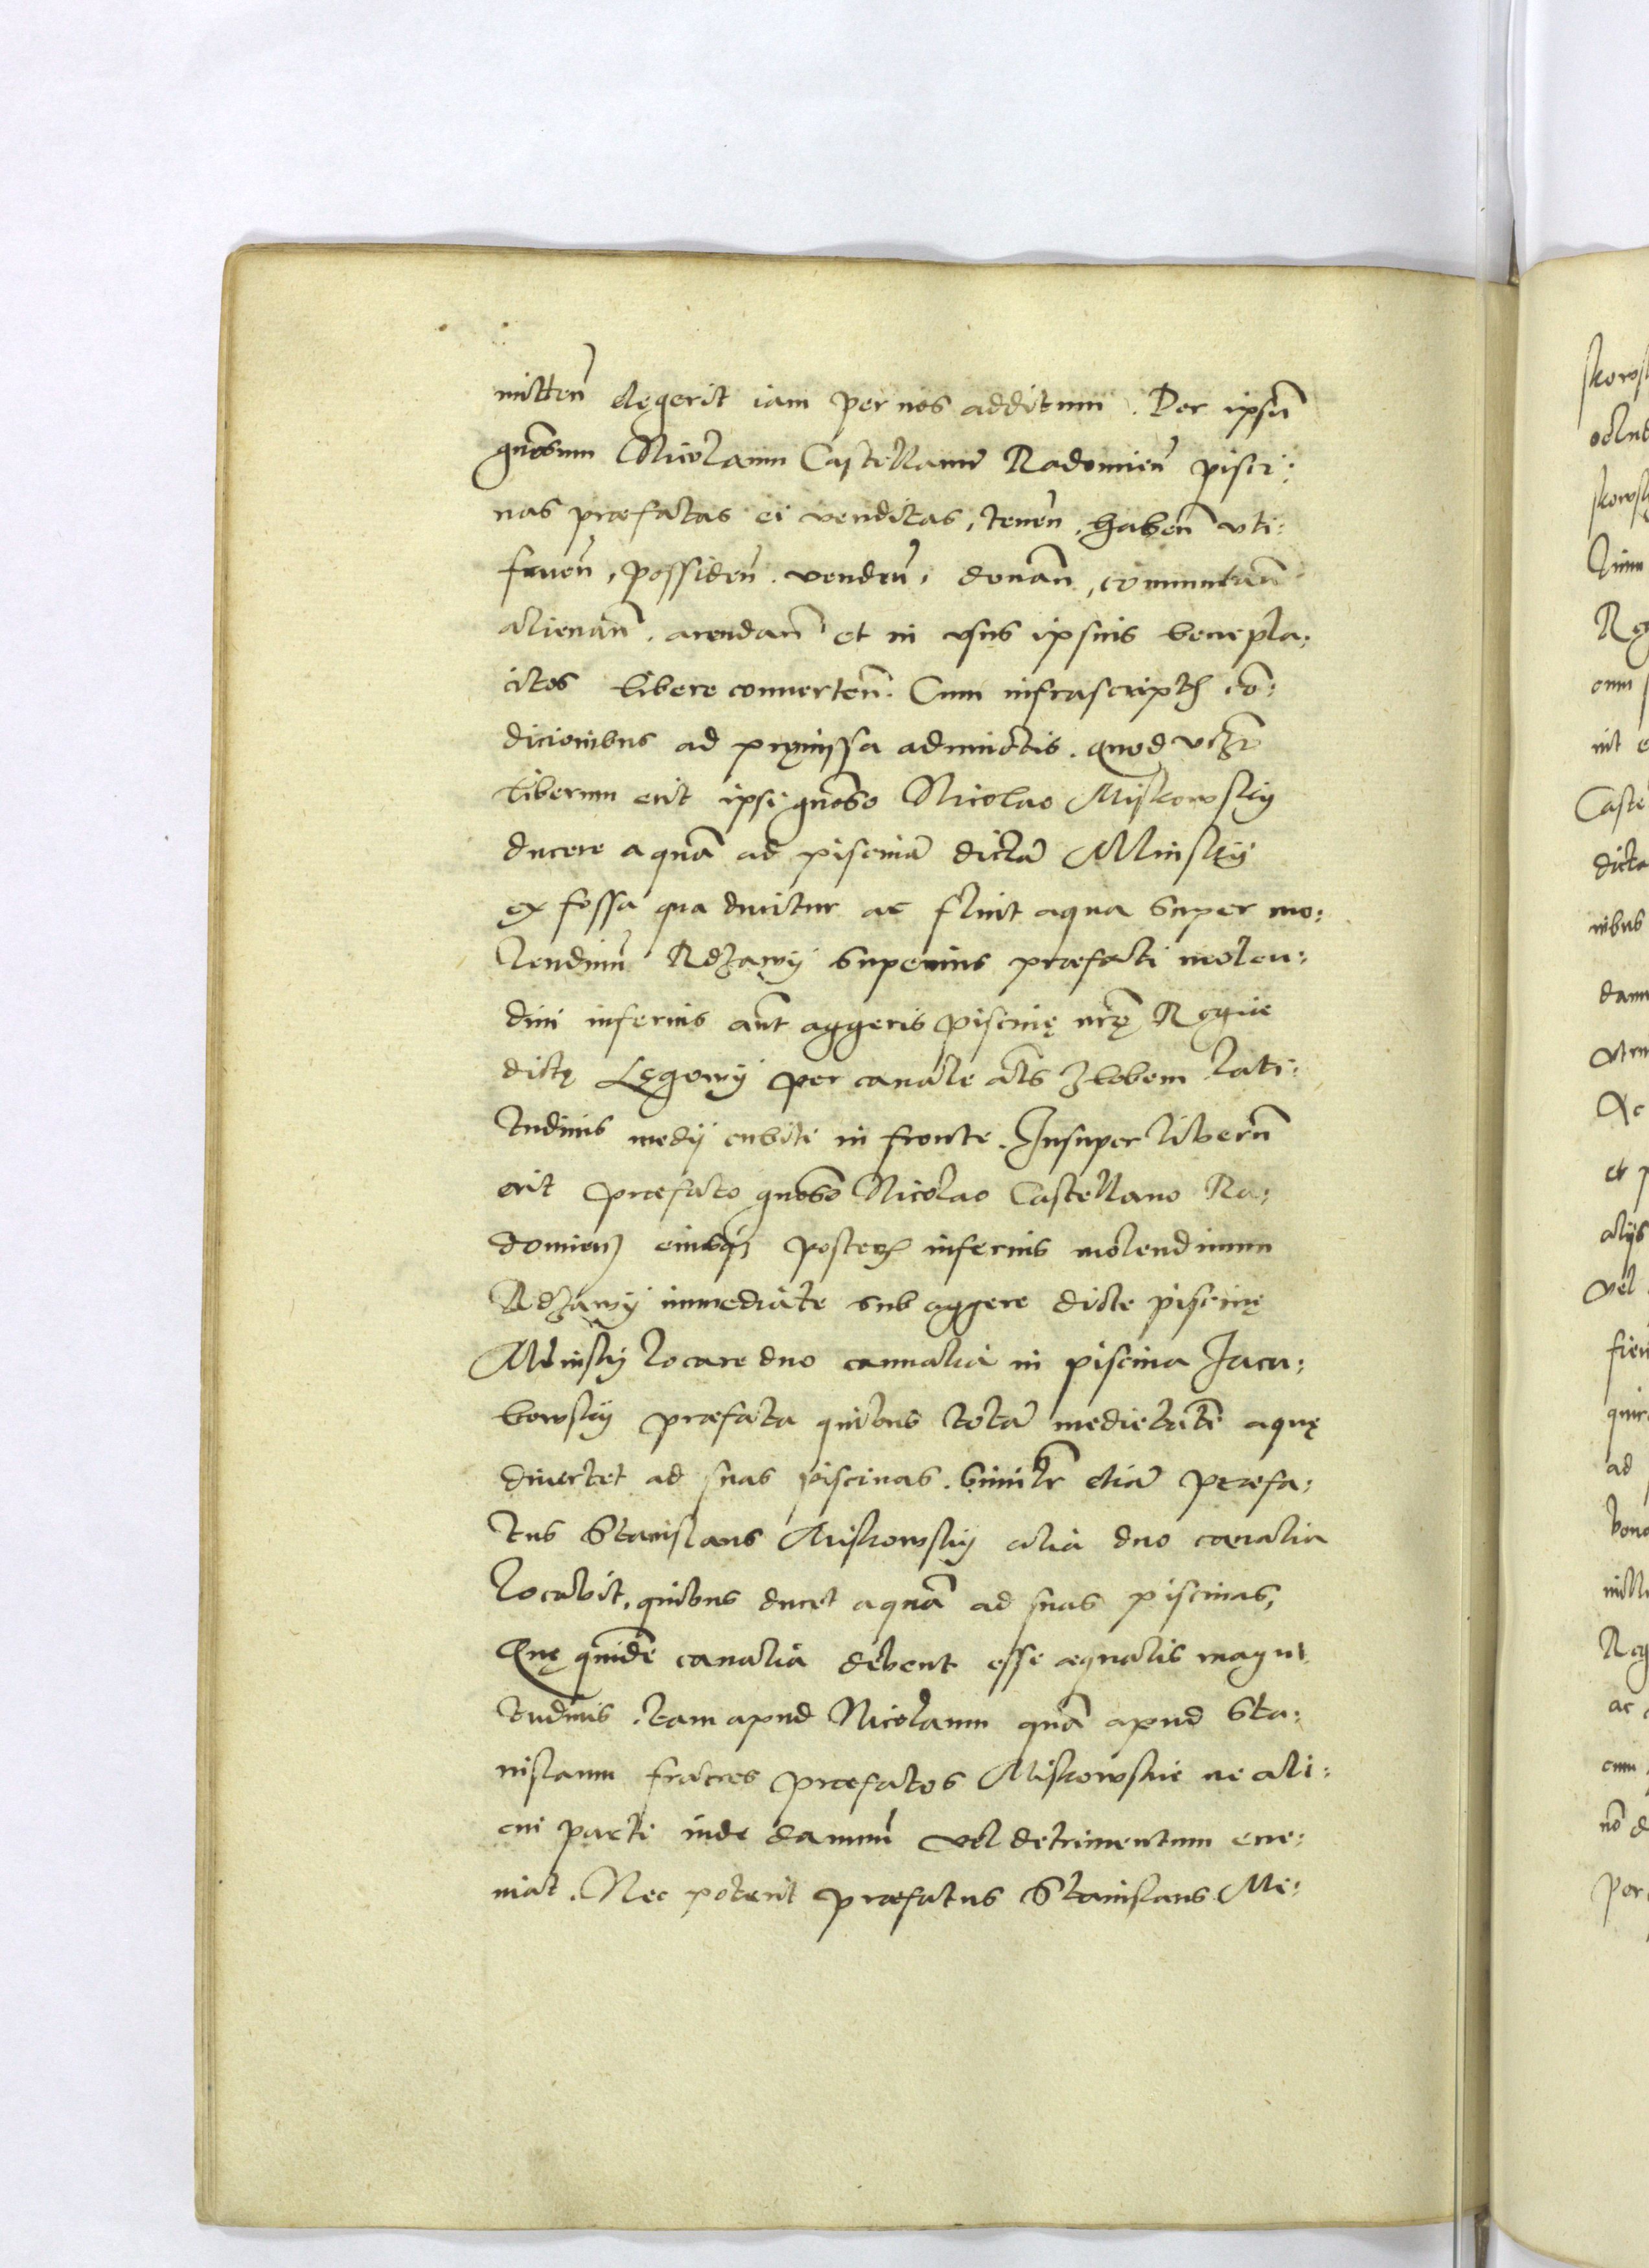 mitten̄ elęgerit iam per nos additum. Per ipsū
gnōsum Nicolaum Castellanū Radomien̄ pisci:
nas præfatas ei venditas, tenen̄, haben̄ vti:
fruen̄, possiden̄. venden̄, donan̄, commutan̄
alienan̄. arendan̄ et in vsus ipsius benepla:
citos libere conuerten̄. Cum infrascript̄ cō:
dicionibus ad pręmissa adiunctis. quod vtz̄
liberum erit ipsi gnōso Nicolao Miskowsky
ducere aquā ad piscinā dictā Mlinsky
ex fossa qua ducitur ac fluit aqua super mo:
lendinū Rdzawy superius præfati molen:
dini inferius aūt aggeris piscinę nrę̄ Regiæ
dictę Lęgowy per canale als̄ Zlobem lati:
tudinis medij cubiti in fronte. Insuper liberū
erit præfato gnōso Nicolao Castellano Ra:
domien̄ eiusq̄ poster̄ inferius molendinum
Rdzawy immediate sub aggere dicte piscinę
Mlinsky locare duo cannalia in piscina Jacu:
bowsky præfata quibus totā medietatē aquę
diuertet ad suas piscinas. Similr̄ etiā præfa:
tus Stanislaus Miskowsky alia duo canalia
locabit, quibus ducet aquā ad suas piscinas,
Quę quidē canalia debent esse æqualis magni
tudinis. tam apud Nicolaum quā apud Sta:
nislaum fratres præfatos Miskowskie ne ali:
cui parti inde damnū vel detrimentum eue:
niat. Nec poterit præfatus Stanislaus Mi: